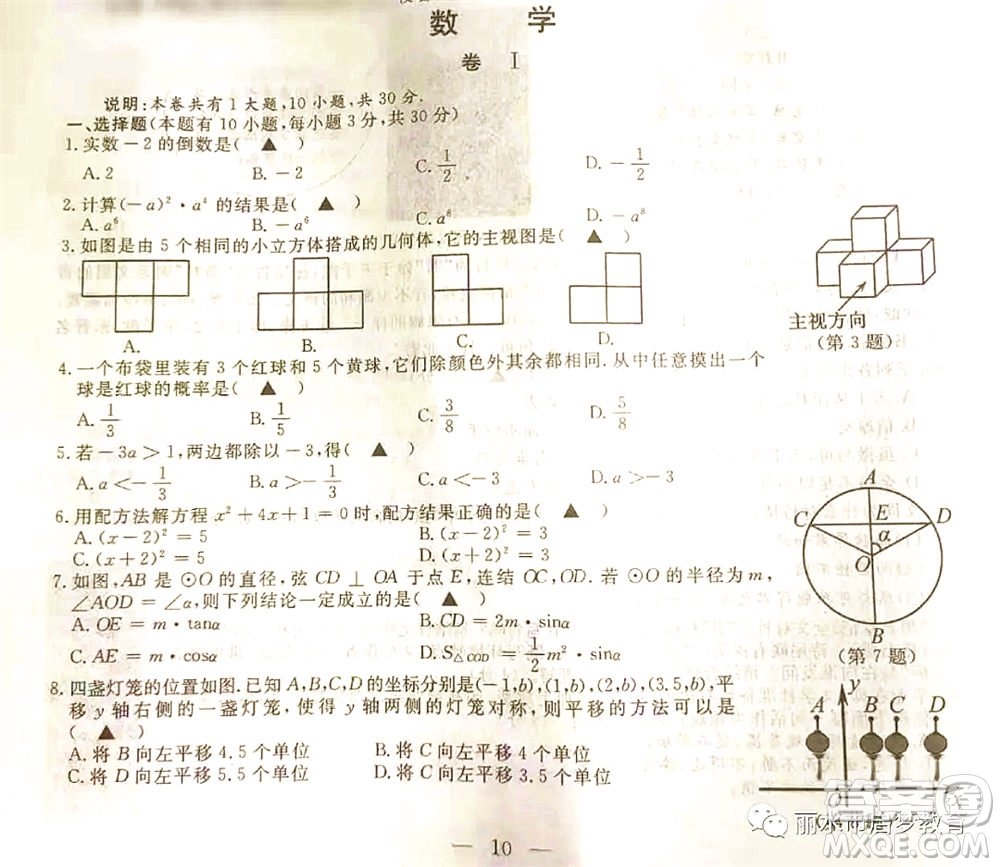 数 学
卷 Ⅰ
说明:本卷共有1大题,10小题,共30分.
一、选择题(本题有10小题,每小题3分,共30分)
1.实数-2的倒数是( ▲ )
A. 2 B. -2 C. 1/2 D. -1/2
2.计算(-a)²·a⁴的结果是( ▲ )
A. a⁶ B. -a⁶ C. a⁸ D. -a⁸
3.如图是由5个相同的小立方体搭成的几何体,它的主视图是( ▲ )
A. B. C. D.
主视方向
(第3题)
4.一个布袋里装有3个红球和5个黄球,它们除颜色外其余都相同.从中任意摸出一个
球是红球的概率是( ▲ )
A. 1/3 B. 1/5 C. 3/8 D. 5/8
5.若-3a>1,两边都除以-3,得( ▲ )
A. a<-1/3 B. a>-1/3 C. a<-3 D. a>-3
6.用配方法解方程x²+4x+1=0时,配方结果正确的是( ▲ )
A. (x-2)²=5 B. (x-2)²=3
C. (x+2)²=5 D. (x+2)²=3
7.如图,AB是⊙O的直径,弦CD⊥OA于点E,连结OC,OD.若⊙O的半径为m,
∠AOD=∠α,则下列结论一定成立的是( ▲ )
A. OE=m·tanα B. CD=2m·sinα
C. AE=m·cosα D. S△COD=1/2m²·sinα
A
C E D
α
O
B
(第7题)
8.四盏灯笼的位置如图.已知A,B,C,D的坐标分别是(-1,b),(1,b),(2,b),(3.5,b),平
移y轴右侧的一盏灯笼,使得y轴两侧的灯笼对称,则平移的方法可以是
( ▲ )
A.将B向左平移4.5个单位 B.将C向左平移4个单位
C.将D向左平移5.5个单位 D.将C向左平移3.5个单位
y
A B C D
O x
— 10 —
答案圈
MXQE.COM